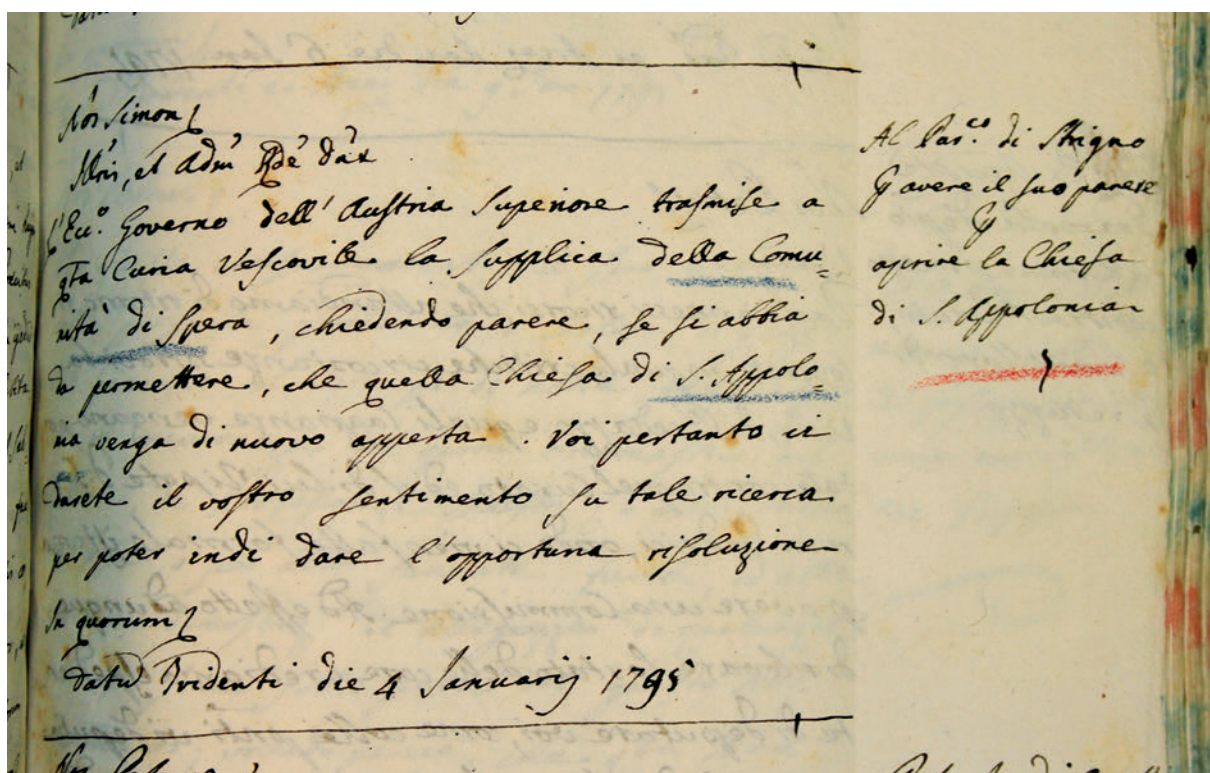 Nos Simon
Nbis, et Adm Rde dax
l'Ecc.o Governo dell' Austria Superiore trasmise a
qta Curia Vescovile la supplica della Comu=
nità di Spera, chiedendo parere, se si abbia
da permettere, che quella Chiesa di S. Appolo=
nia venga di nuovo apperta. Voi pertanto ci
darete il vostro sentimento su tale ricerca
per poter indi dare l'opportuna risoluzione
In quorum
Datu Tridenti die 4 Januarij 1795
Al Par.co di Strigno
p avere il suo parere
p
aprire la Chiesa
di S. Appolonia